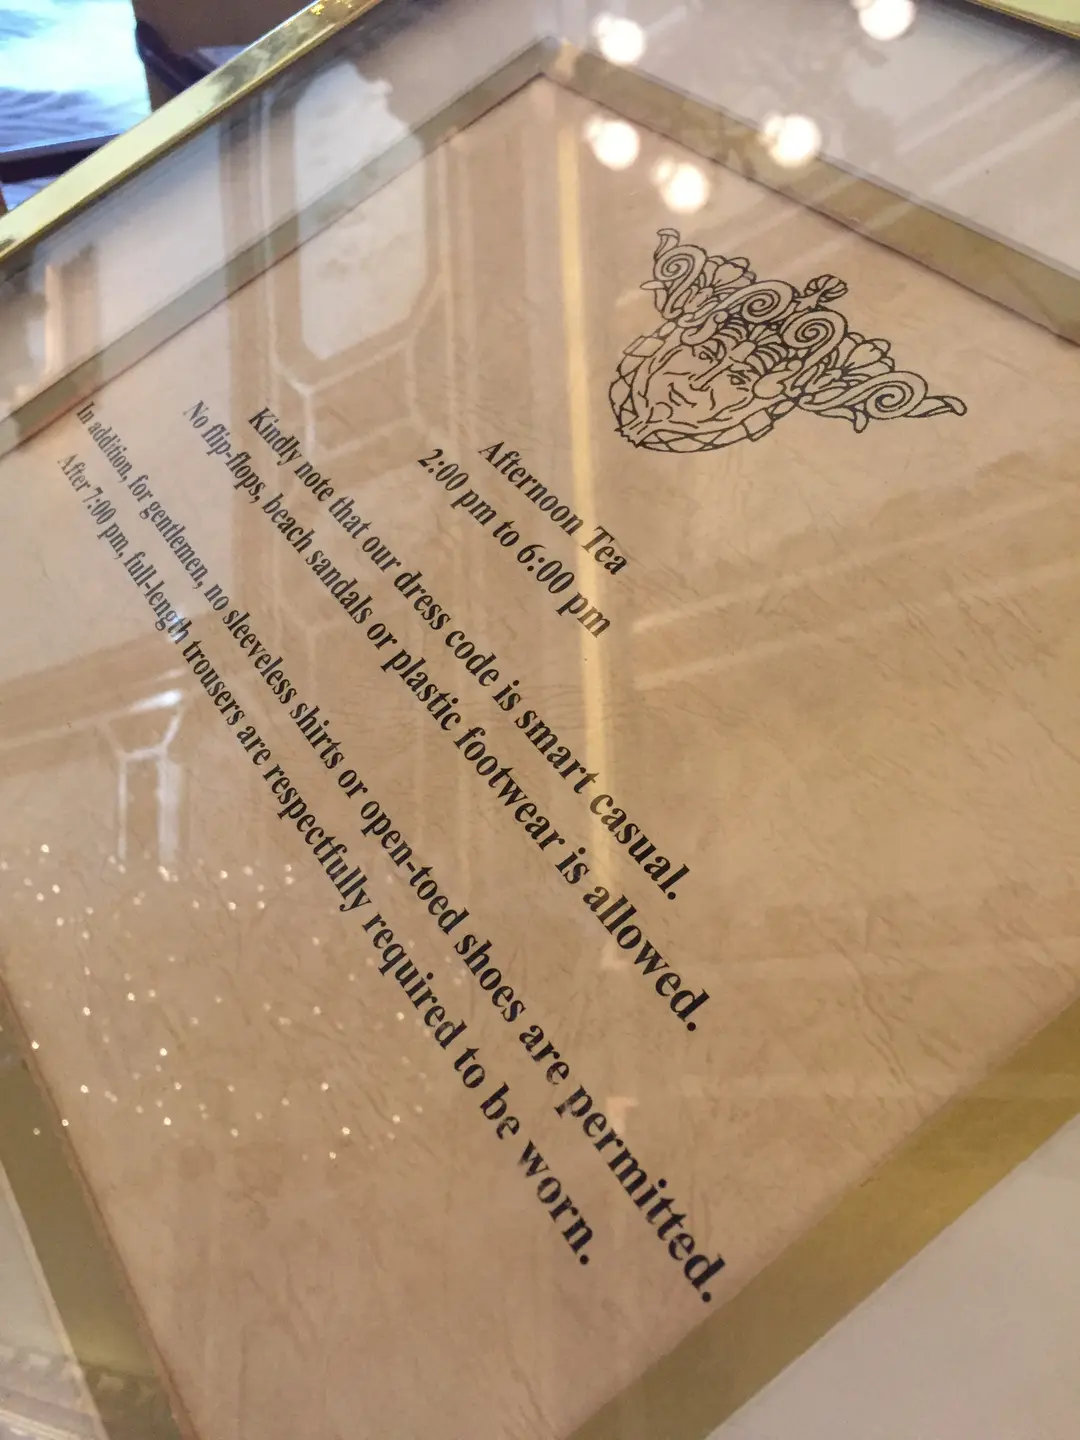 Afternoon Tea
2:00 pm to 6:00 pm
Kindly note that our dress code is smart casual.
No flip-flops, beach sandals or plastic footwear is allowed.
In addition, for gentlemen, no sleeveless shirts or open-toed shoes are permitted.
After 7:00 pm, full-length trousers are respectfully required to be worn.